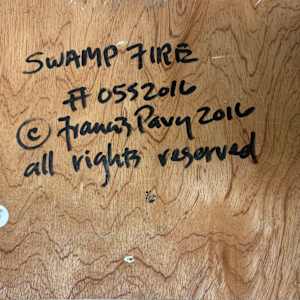 SWAMP FIRE
# 0552016
© Francis Pavy 2016
all rights reserved